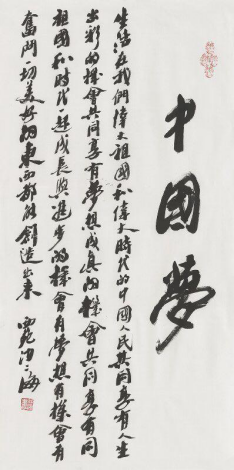 中國夢
生活在我們偉大祖國和偉大時代的中國人民共同享有人生
出彩的機會共同享有夢想成真的機會共同享有同
祖國和時代一起成長與進步的機會有夢想有機會有
奮鬥一切美好的東西都能創造出來